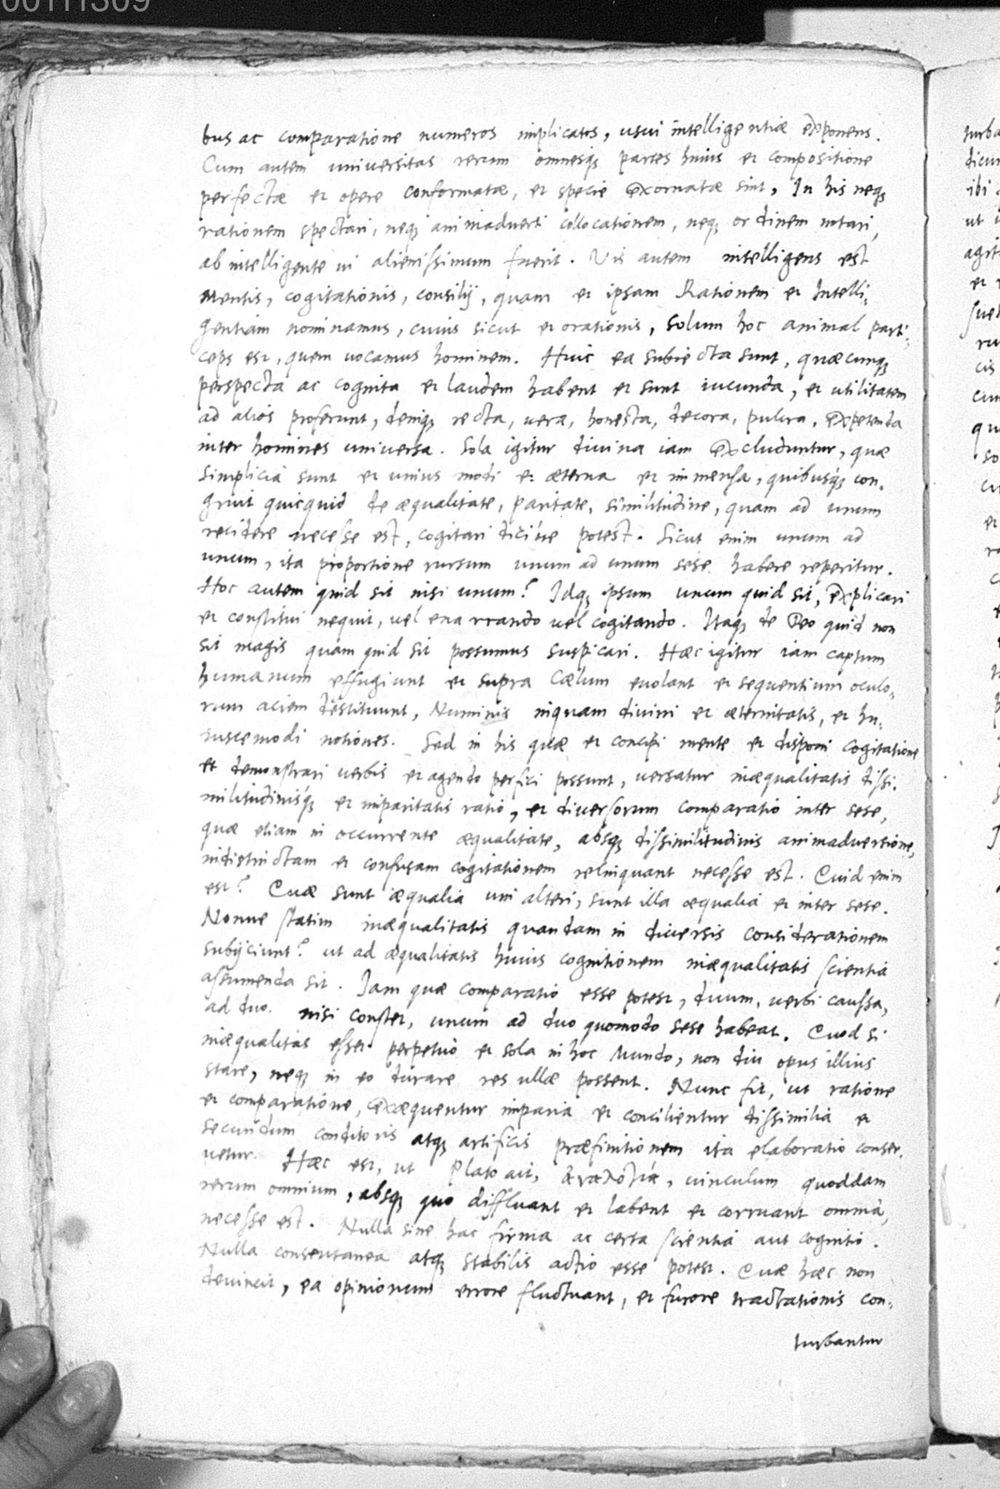 00111309
bus ac comparatione numeros implicatos, usui intelligentiæ exponens.
Cum autem universitas rerum omnesq; partes huius et compositione
perfectæ et opere conformatæ, et specie exornatæ sint, In his neq;
rationem spectari, neq; animadverti collocationem, neq; ordinem notari,
ab intelligente vi alienissimum fuerit. Vis autem intelligens est
Mentis, cogitationis, consilij, quam et ipsam Rationem et Intelli,
gentiam nominamus, cuius sicut et orationis, solum hoc animal parti,
ceps est, quem vocamus hominem. Huic ea subiecta sunt, quæcunq;
perspecta ac cognita et laudem habent et sunt iucunda, et utilitatem
ad alios proferunt, deniq; recta, vera, honesta, decora, pulcra, expetenda
inter homines universa. Sola igitur divina iam excluduntur, quæ
simplicia sunt et unius modi et æterna et immensa, quibusq; con,
gruit quicquid de æqualitate, paritate, similitudine, quam ad unum
recidere necesse est, cogitari dicive potest. Sicut enim unum ad
unum, ita proportione rursum unum ad unum sese habere reperitur.
Hoc autem quid sit nisi unum? Idq; ipsum unum quid sit, explicari
et constitui nequit, vel enarrando vel cogitando. Itaq; de Deo quid non
sit magis quam quid sit possumus suspicari. Hæc igitur iam captum
humanum effugiunt et supra Cælum evolant et sequentium oculo,
rum aciem destituunt, Numinis inquam divini et æternitatis, et hu,
iuscemodi notiones. Sed in his quæ et concipi mente et disponi cogitatione
et demonstrari verbis et agendo perfici possunt, versatur inæqualitatis dissi,
militudinisq; et imparitatis ratio, et diversorum comparatio inter sese,
quæ etiam in occurrente æqualitate, absq; dissimilitudinis animadversione,
indistinctam et confusam cogitationem relinquant necesse est. Quid enim
est? Quæ sunt æqualia uni alteri, sunt illa æqualia et inter sese.
Nonne statim inæqualitatis quandam in diversis considerationem
subijciunt? ut ad æqualitatis huius cognitionem inæqualitatis scientia
assumenda sit. Iam quæ comparatio esse potest, duum, verbi caussa,
ad duo. nisi constet, unum ad duo quomodo sese habeat. Quod si
inæqualitas esset perpetuo et sola in hoc Mundo, non diu opus illius
stare, neq; in eo durare res ullæ possent. Nunc fit, ut ratione
et comparatione, exæquentur imparia et concilientur dissimilia et
secundum conditoris atq; artificis præfinitionem ita elaboratio conser,
vetur. Hæc est, ut Plato ait, ἀναλογία, vinculum quoddam
rerum omnium, absq; quo diffluant et labent et corruant omnia,
necesse est. Nulla sine hac firma ac certa scientia aut cognitio.
Nulla consentanea atq; stabilis actio esse potest. Quæ hæc non
devincit, ea opinionum errore fluctuant, et furore tractationis con,
turbantur